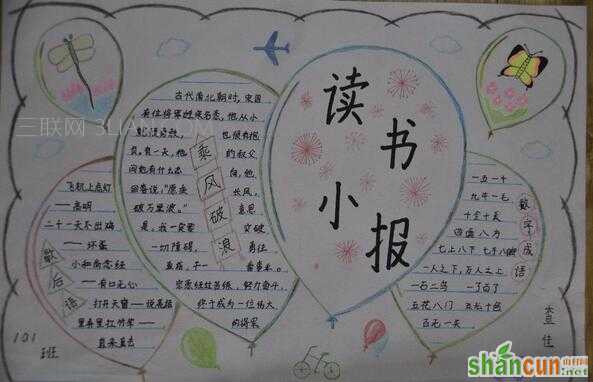 读书小报
乘风破浪
古代南北朝时,宋国
有位将军姓宗名悫,他从小
就很勇敢,也很有抱
负。有一天,他的叔父
问他有什么志向,他
回答说:“愿乘长风,
破万里浪。”意思
是,我一定要突破
一切障碍,勇往
直前,干一番事业。
宗悫经过苦练,努力奋斗,
终于成为一位伟大
的将军
歇后语
飞机上点灯
——高明
二十一天不出鸡
——坏蛋
小和尚念经
——有口无心
打开天窗——说亮话
里弄里扛竹竿——
直来直去
数字成语
一五一十
九牛一毛
十全十美
四面八方
七上八下 七手八脚
一人之下,万人之上
一石二鸟 一了百了
五花八门 五光十色
百无一失
101
班
查佳
三联网 3LIAN.COM
shancun
山村网
.net